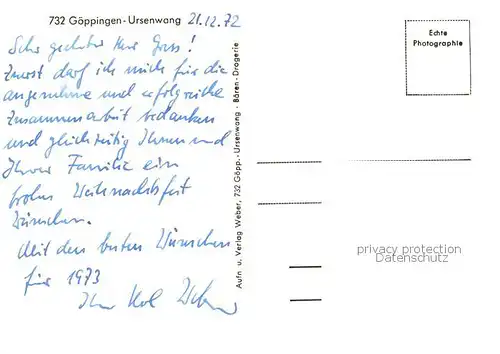 732 Göppingen - Ursenwang 21.12.72
Sehr geehrter Herr Gross!
Zuerst darf ich mich für die
angenehme und erfolgreiche
Zusammenarbeit bedanken
und gleichzeitig Ihnen und
Ihrer Familie ein
frohes Weihnachtsfest
wünschen.
Mit den besten Wünschen
für 1973
Ihr Karl Weber
Aufn. u. Verlag Weber, 732 Göpp.-Ursenwang - Bären-Drogerie
Echte
Photographie
privacy protection
Datenschutz